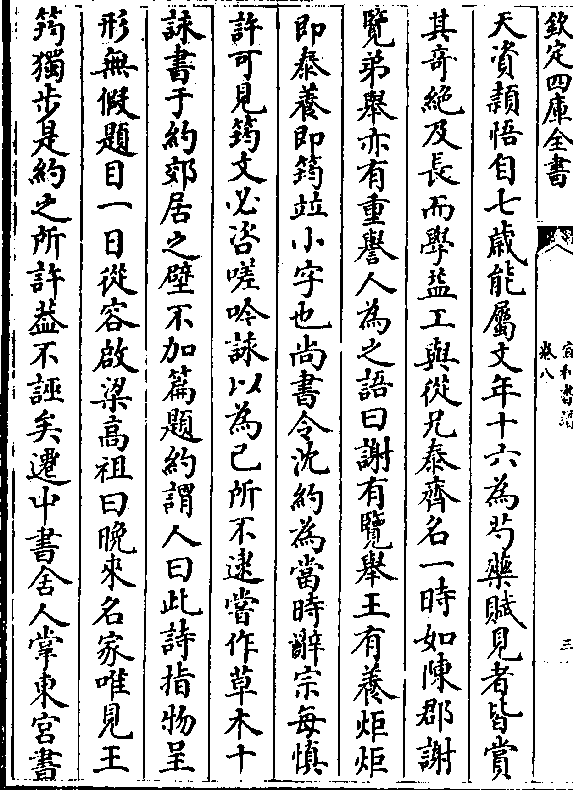 欽定四庫全書
宣和書譜
卷八
三
天資穎悟自七歲能屬文年十六為芍藥賦見者皆賞
其奇絶及長而學益工與從兄泰齊名一時如陳郡謝
覽弟舉亦有重譽人為之語曰謝有覽舉王有養炬炬
即泰養即筠竝小字也尚書令沈約為當時辭宗每慎
許可見筠文必咨嗟吟詠以為己所不逮嘗作草木十
詠書于約郊居之壁不加篇題約謂人曰此詩指物呈
形無假題目一日從容啟梁高祖曰晚來名家唯見王
筠獨步是約之所許葢不誣矣遷中書舍人掌東宫書